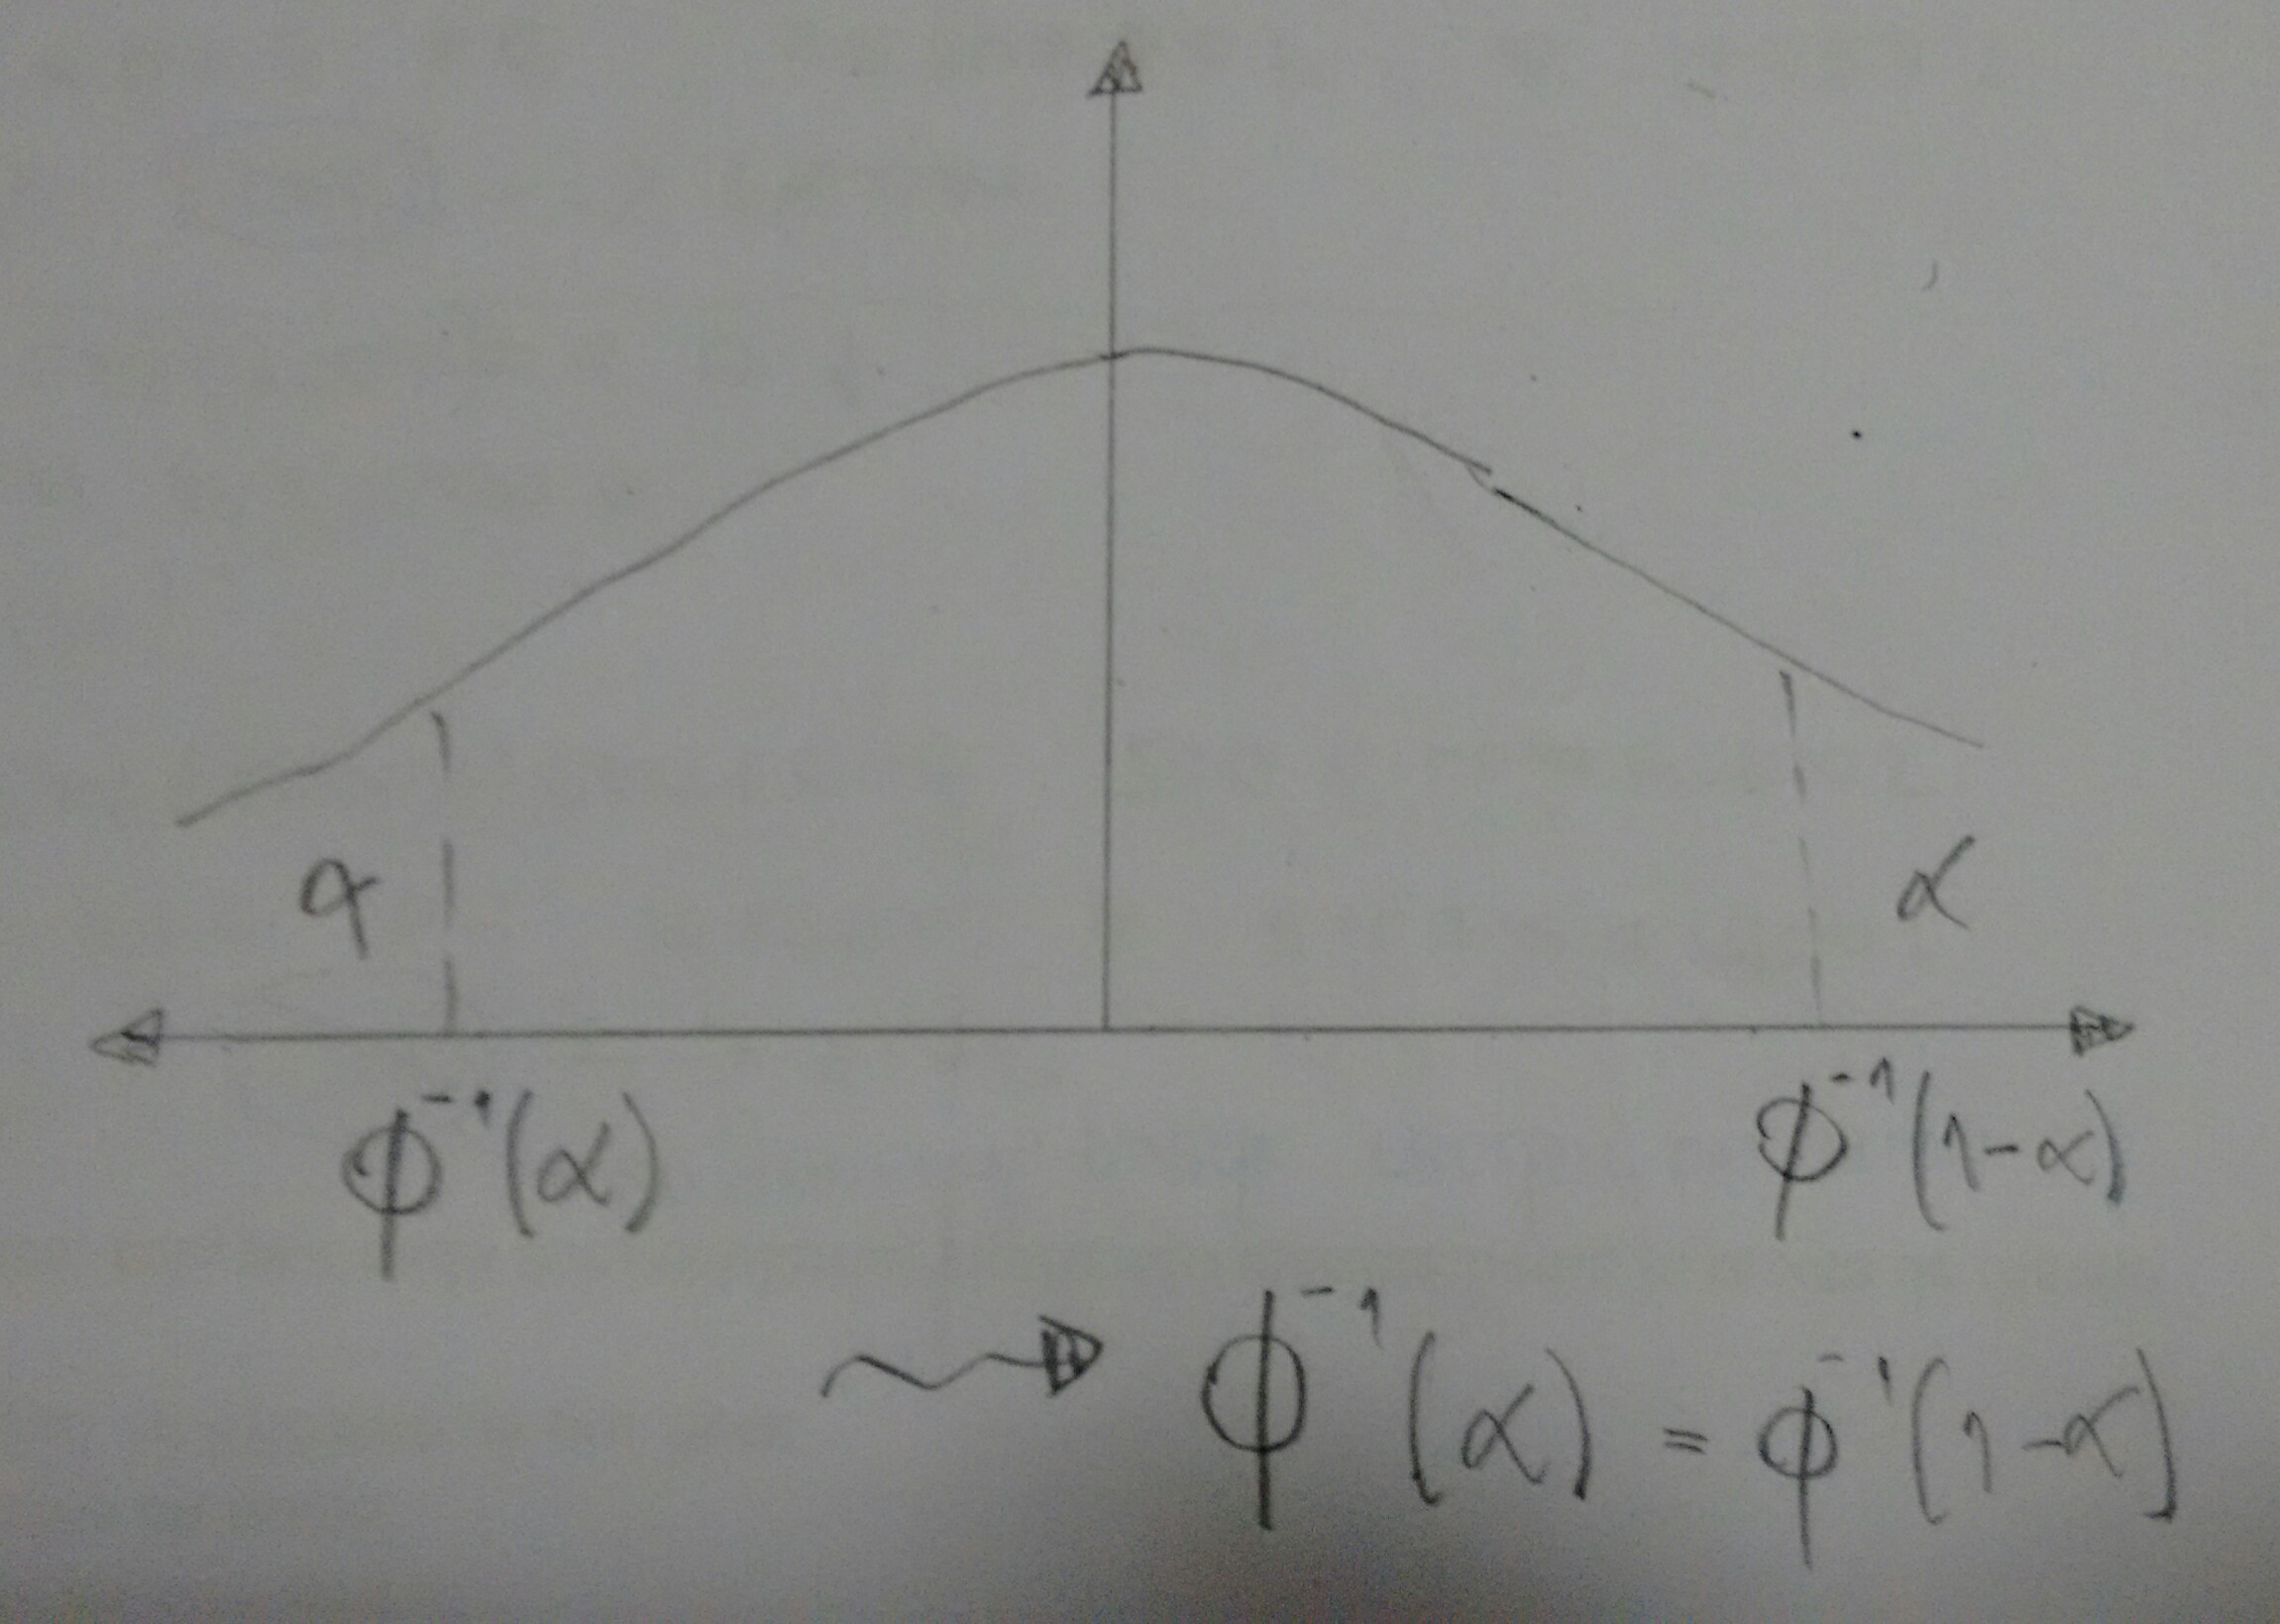 α α
ϕ⁻¹(α) ϕ⁻¹(1-α)
ϕ⁻¹(α) = ϕ⁻¹(1-α)